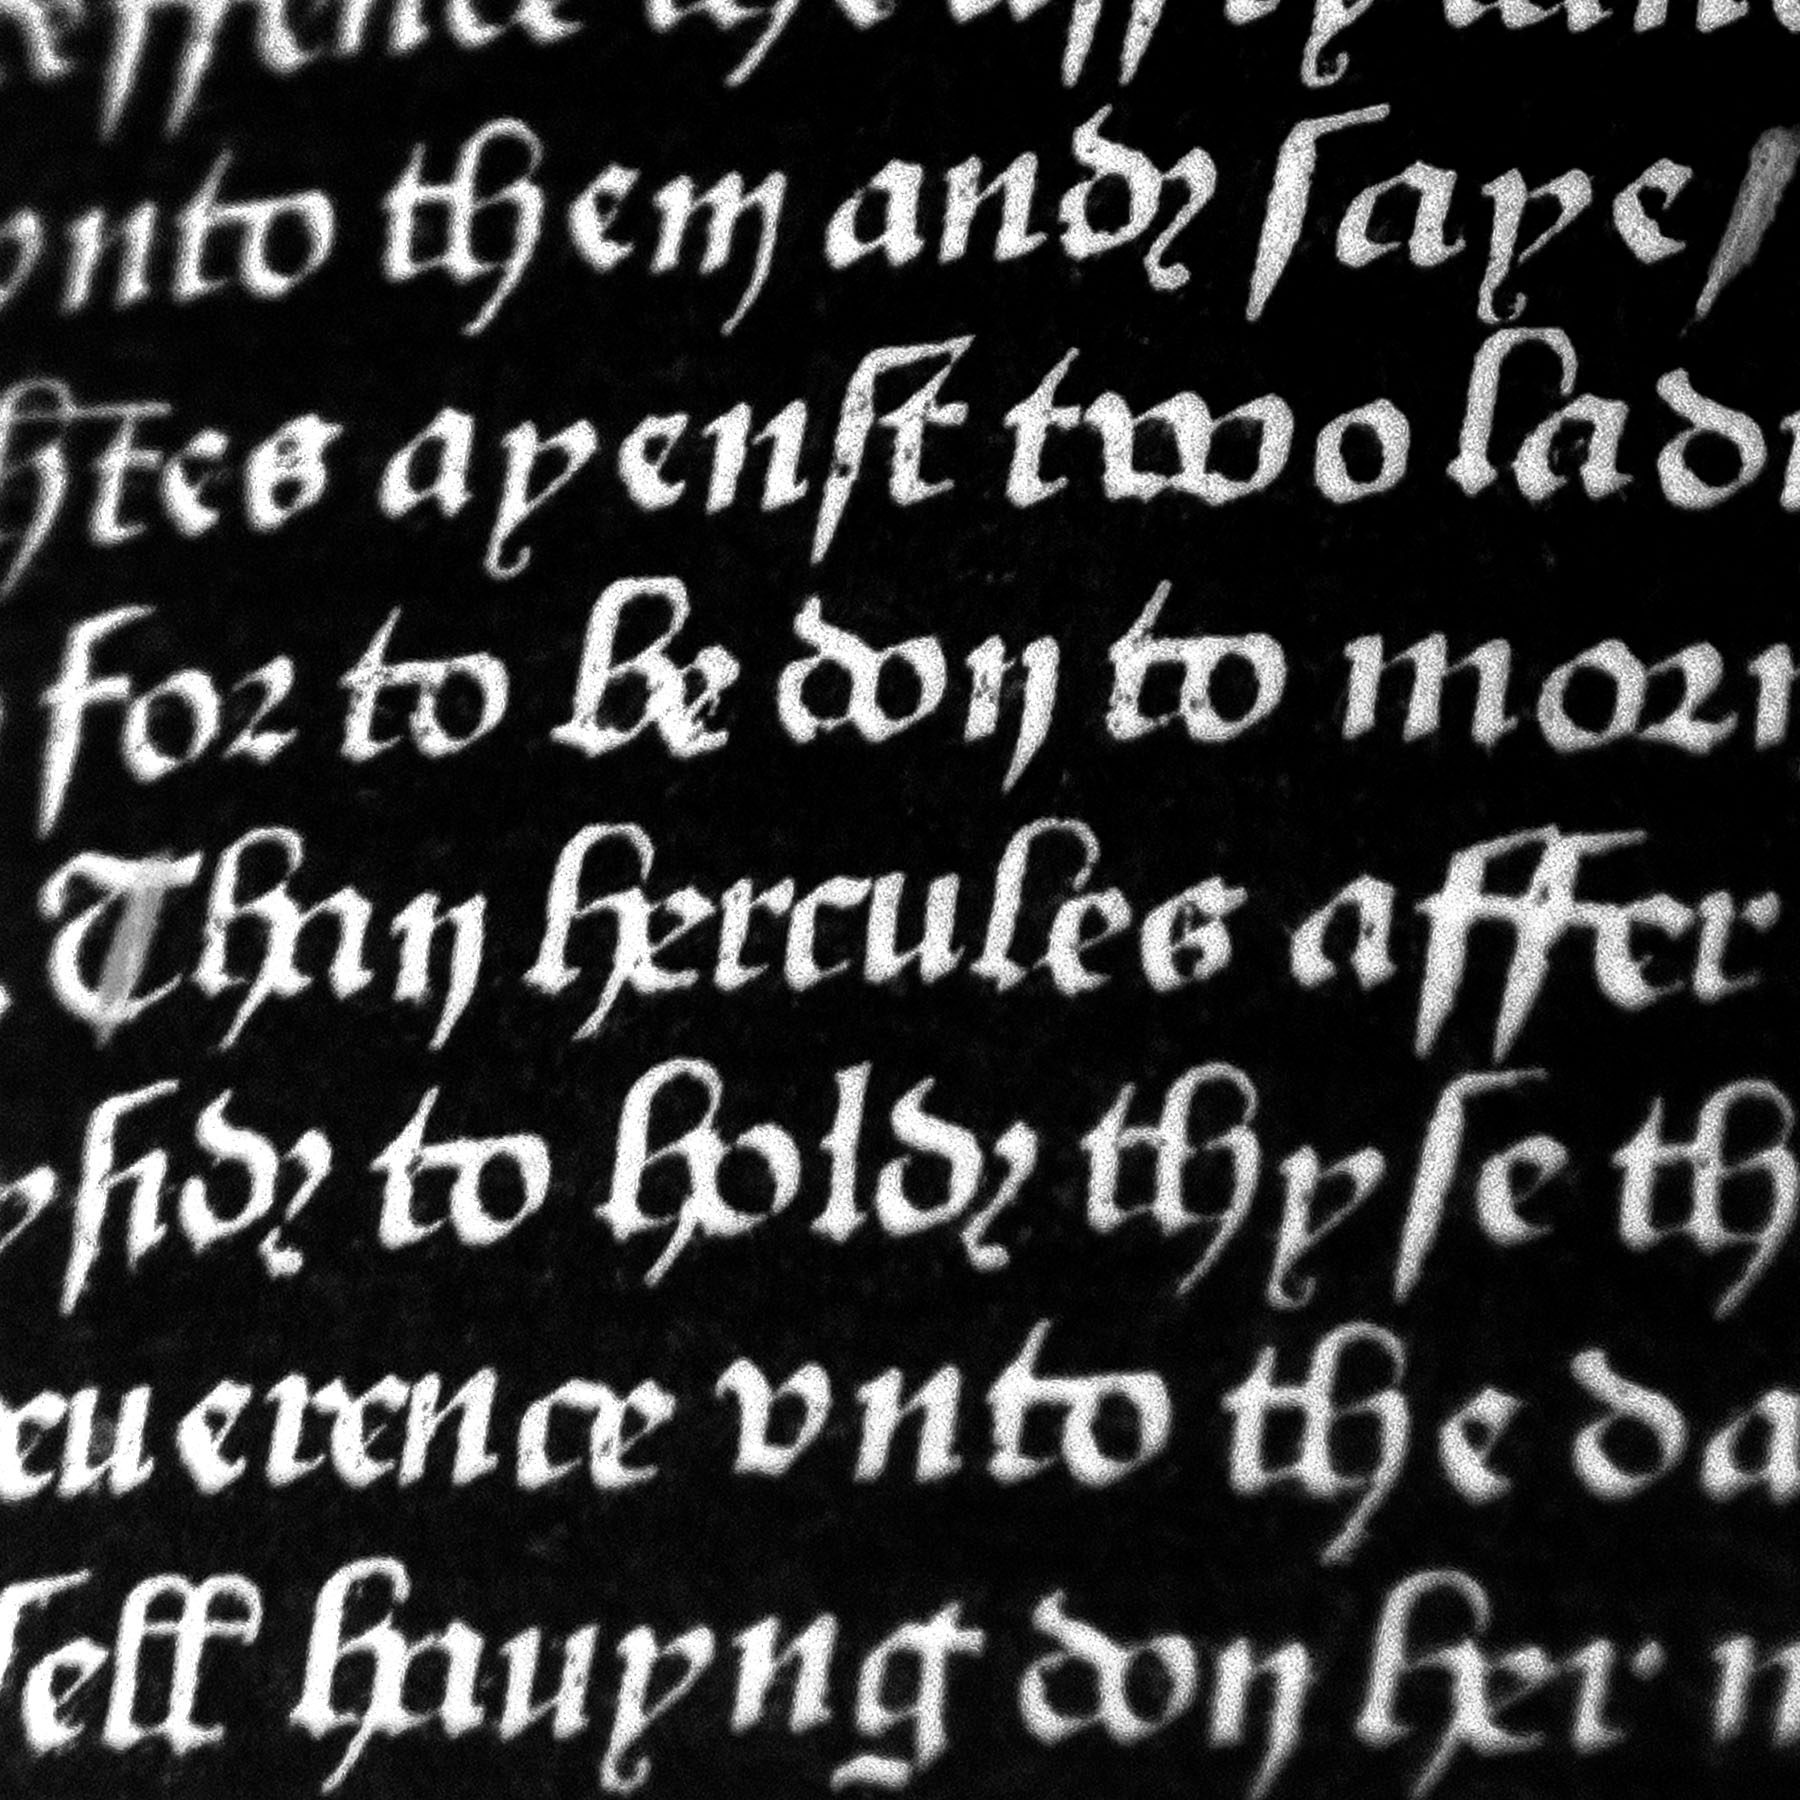 vnto them and saye /
htes ayenst two ladi
for to be don to morn
. Than hercules affer
y sid to hold thyse th
euerence vnto the da
self hauyng don her n